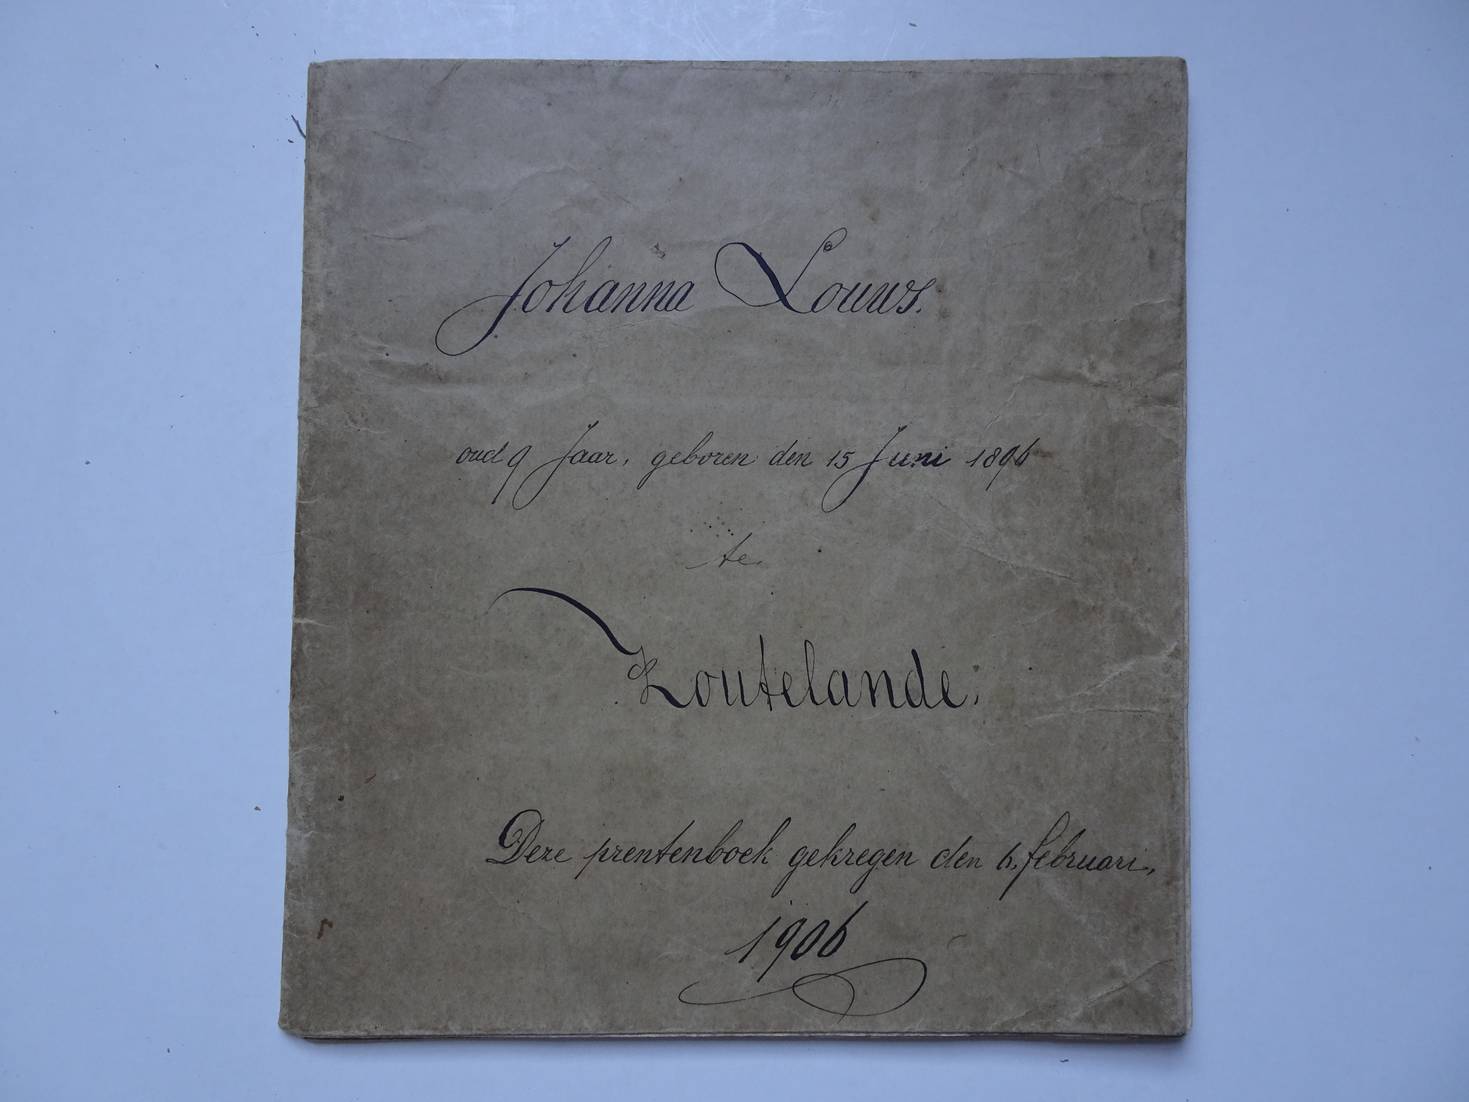 Johanna Louws.
oud 9 Jaar, geboren den 15 Juni 1896
te
Zoutelande.
Deze prentenboek gekregen den 6. februari,
1906